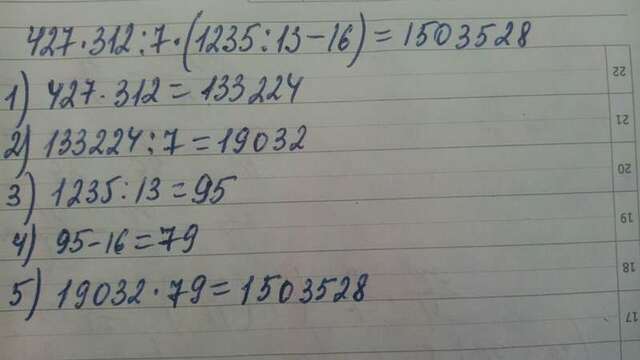 427·312:7·(1235:13-16)=1503528
1) 427·312=133224
2) 133224:7=19032
3) 1235:13=95
4) 95-16=79
5) 19032·79=1503528
22
21
20
19
18
17